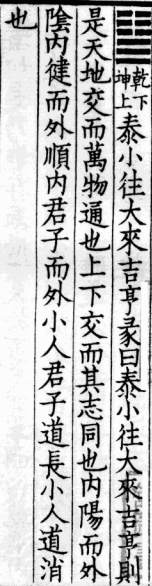 ䷊乾下坤上泰小往大來吉亨彖曰泰小往大來吉亨則
是天地交而萬物通也上下交而其志同也内陽而外
陰内徤而外順内君子而外小人君子道長小人道消
也